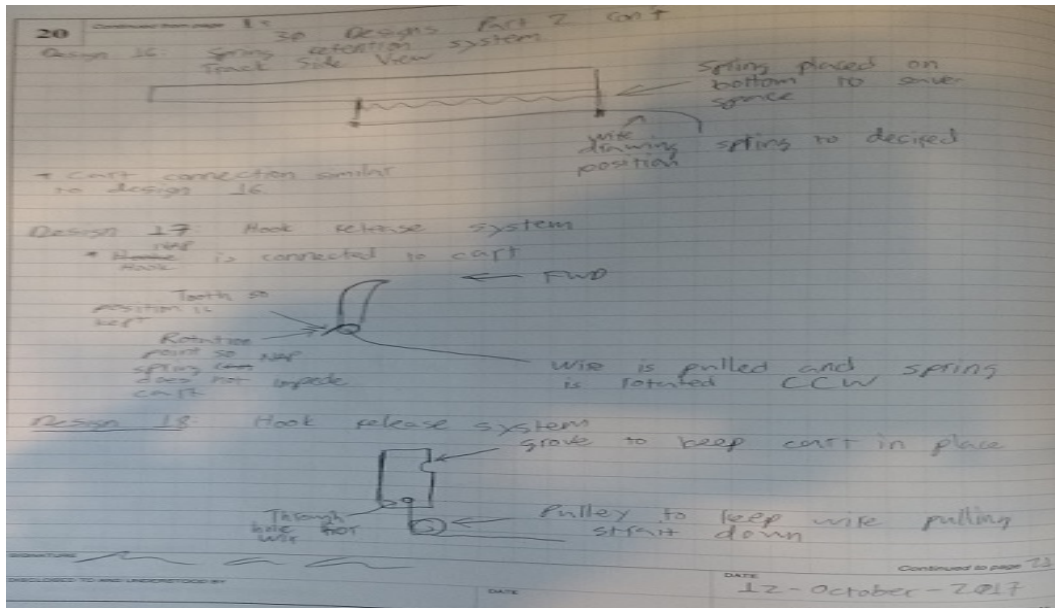 20 Continued from page 1
30 Designs Part 2 con't
Design 16: Spring retention system
Track Side View
spring placed on
bottom to saver
space
wire
drawing spring to decired
position
cart connection similar
to design 16
Design 17 Hook release system
NAP
* Hook is connected to cart
FWD
Tooth so
position is
kept
Rotation
point so NAP
spring
does not impede
cart
wire is pulled and spring
is rotated CCW
Design 18 Hook release system
grove to keep cart in place
Through
hole for
wire
Pulley to keep wire pulling
strait down
SIGNATURE
Continued to page 21
DISCLOSED TO AND UNDERSTOOD BY
DATE
DATE
12-October-2017